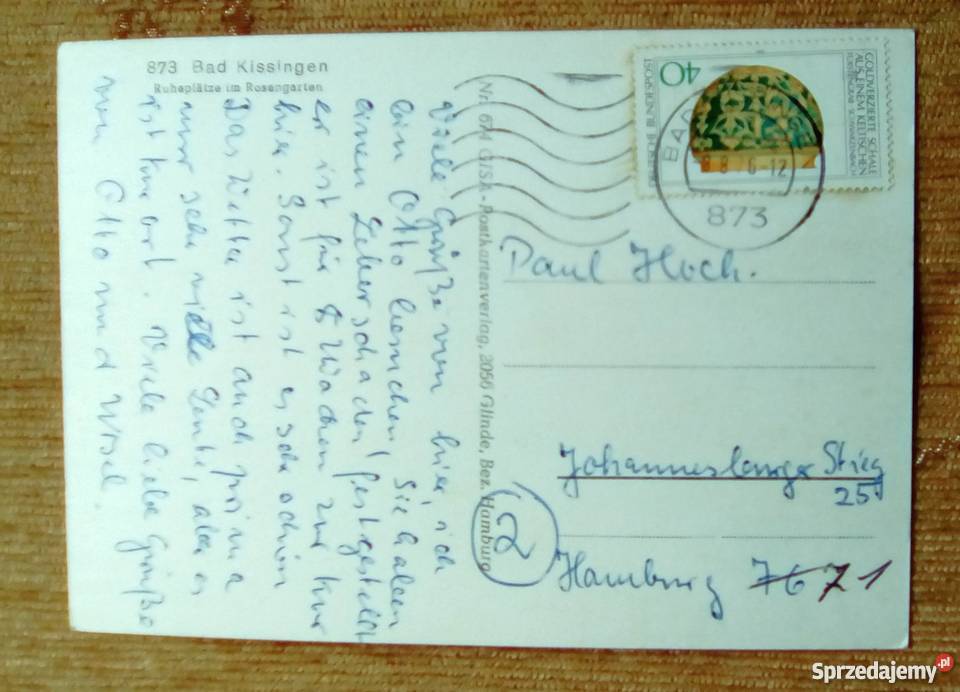 873 Bad Kissingen
Ruheplätze im Rosengarten
Viele Grüße von hier, ich
bin Otto besuchen. Sie haben
einen Leberschaden festgestellt
er ist für 6 Wochen zur Kur
hier. Sonst ist es sehr schön
Das Wetter ist auch prima
nur sehr viele Leute, aber es
ist Kurort. Viele liebe Grüße
von Otto und Ursel.
Nr. 674 GISA-Postkartenverlag, 2056 Glinde, Bez. Hamburg
DEUTSCHE BUNDESPOST
40
GOLDVERZIERTE SCHALE
AUS EINEM KELTISCHEN
FÜRSTENGRAB · SCHWARZENBACH
BAD
-12
873
Paul Hoch.
Stieg
25
2
Hamburg 76 71
Sprzedajemy.pl